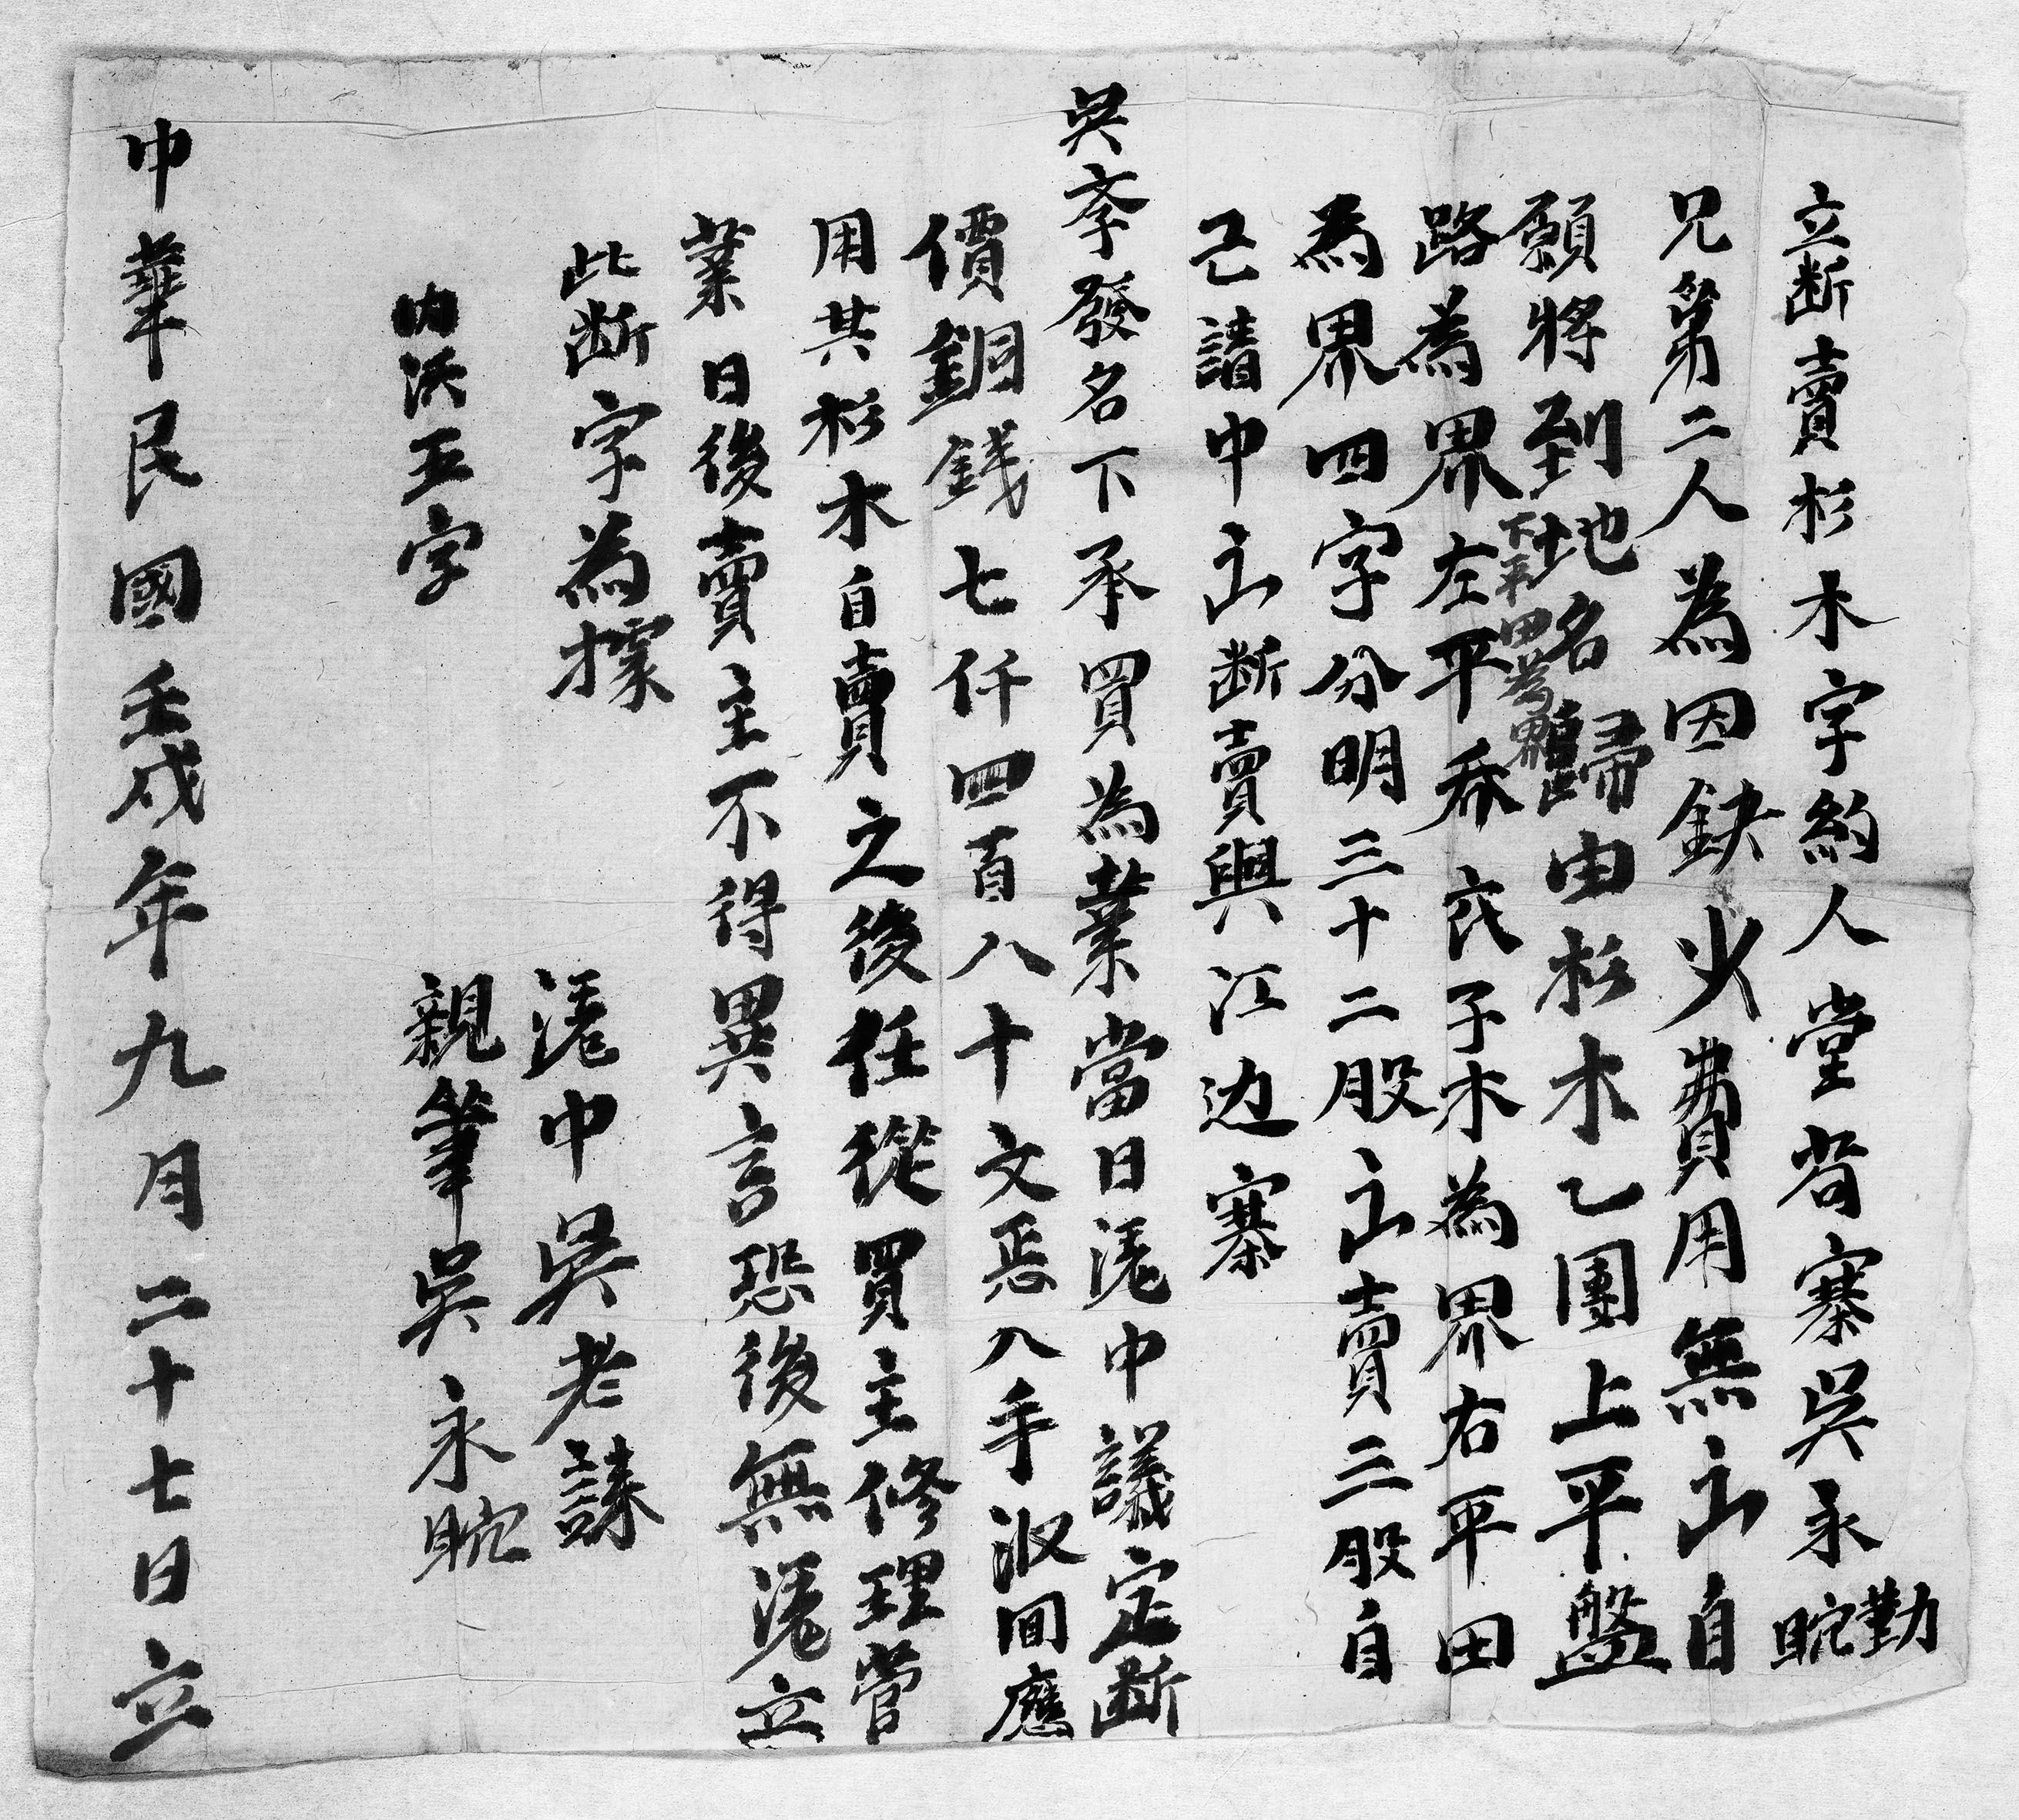 立断賣杉木字約人堂苟寨吳永勤 晥
兄弟二人為因缺少費用無山自
願將到地名歸由杉木乙團上平盤
路為界下平田為界左平岙衣子木為界右平田
為界四字分明三十二股山賣三股自
己請中山断賣與江边寨
吳李發名下承買為業當日憑中議定断
價銅錢七仟四百八十文恁入手收囬應
用其杉木自賣之後任從買主修理營
業日後賣主不得異言恐後無憑立
此断字為據
憑中吳老謙
内添五字
親筆吳永晥
中華民國壬戌年九月二十七日立